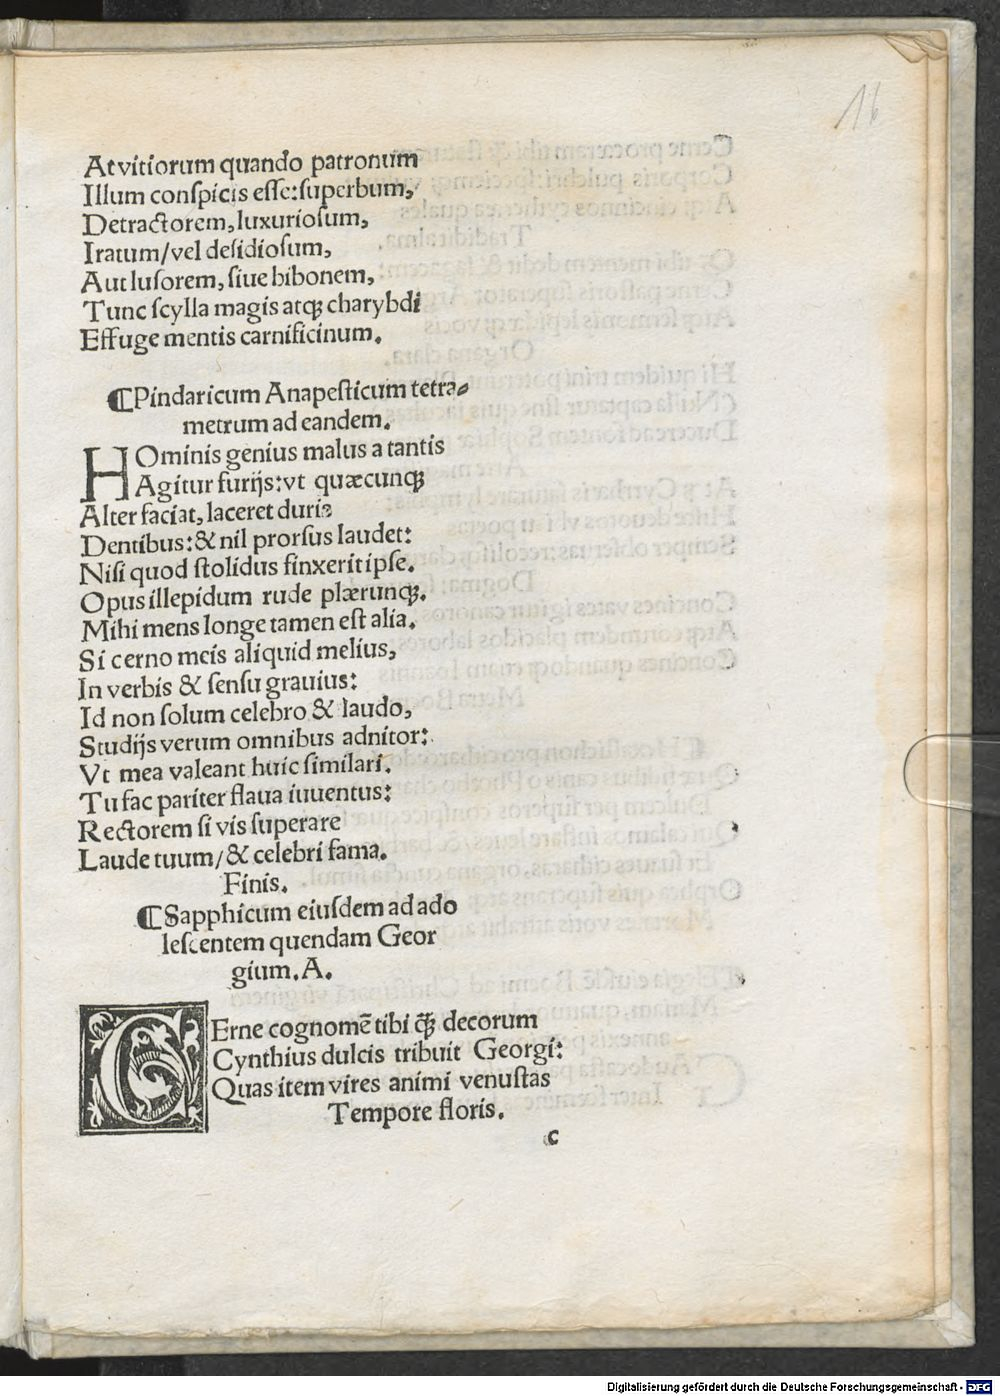 16
At vitiorum quando patronum
Illum conſpicis eſſe:ſuperbum,
Detractorem,luxurioſum,
Iratum/vel deſidioſum,
Aut luſorem, ſiue bibonem,
Tunc ſcylla magis atqꝫ charybdi
Effuge mentis carnificinum.
¶Pindaricum Anapeſticum tetra⸗
metrum ad eandem.
HOminis genius malus a tantis
Agitur furijs:vt quæcunqꝫ
Alter faciat, laceret duris
Dentibus:& nil prorſus laudet:
Niſi quod ſtolidus finxerit ipſe.
Opus illepidum rude plærunqꝫ.
Mihi mens longe tamen eſt alia.
Si cerno meis aliquid melius,
In verbis & ſenſu grauius:
Id non ſolum celebro & laudo,
Studijs verum omnibus adnitor:
Vt mea valeant huic ſimilari.
Tu fac pariter flaua iuuentus:
Rectorem ſi vis ſuperare
Laude tuum/& celebri fama.
Finis.
¶Sapphicum eiuſdem ad ado
leſcentem quendam Geor
gium.A.
CErne cognomẽ tibi q̃ꝫ decorum
Cynthius dulcis tribuit Georgi:
Quas item vires animi venuſtas
Tempore floris.
c
Digitalisierung gefördert durch die Deutsche Forschungsgemeinschaft - DFG